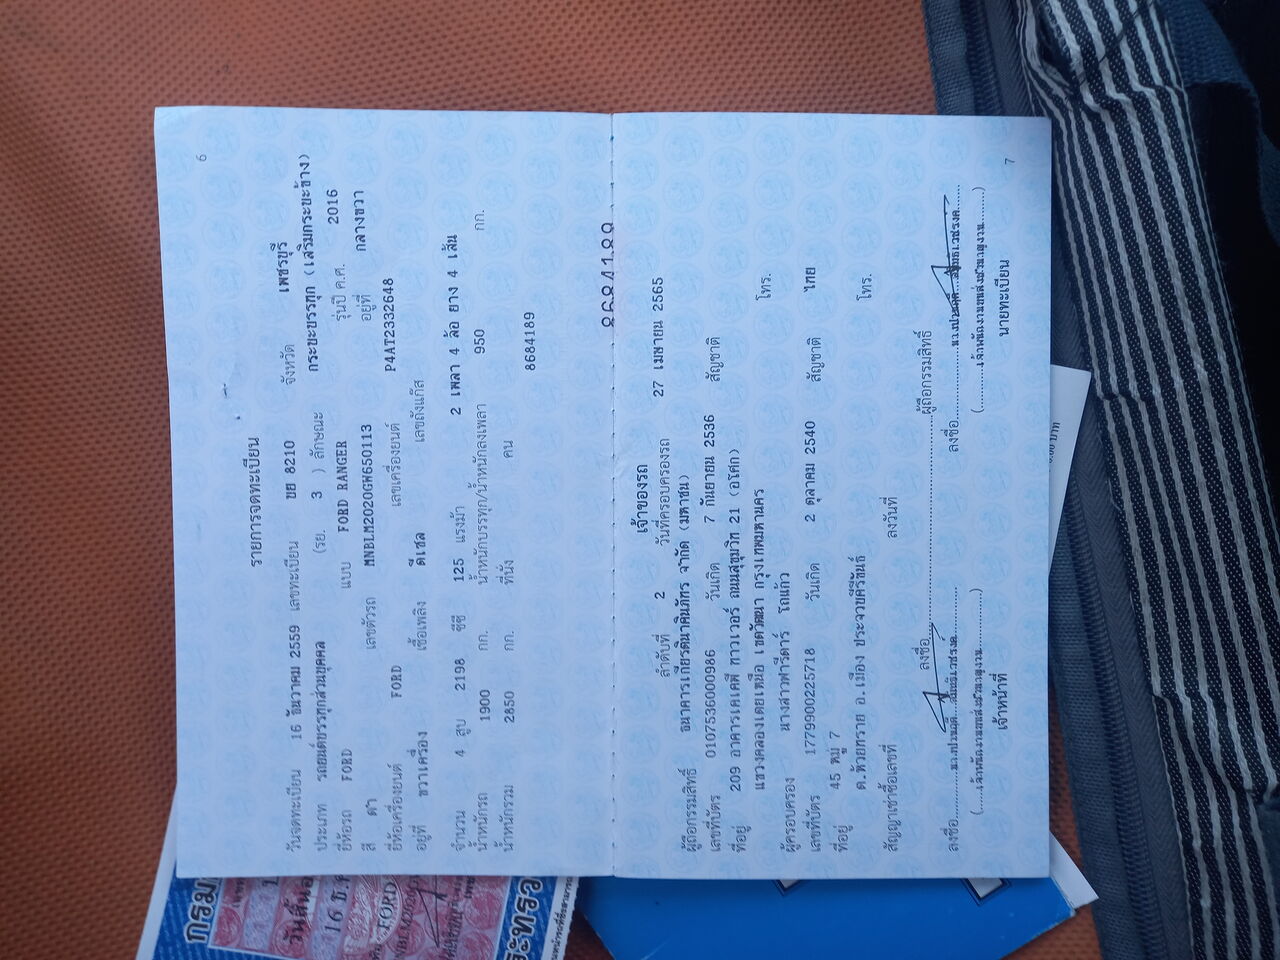 6
รายการจดทะเบียน
วันจดทะเบียน 16 ธันวาคม 2559 เลขทะเบียน ขย 8210 จังหวัด เพชรบุรี
ประเภท รถยนต์บรรทุกส่วนบุคคล (รย. 3 ) ลักษณะ กระบะบรรทุก (เสริมกระบะข้าง)
ยี่ห้อรถ FORD แบบ FORD RANGER รุ่นปี ค.ศ. 2016
สี ดำ เลขตัวรถ MNBLM2020GW650113 อยู่ที่ กลางขวา
ยี่ห้อเครื่องยนต์ FORD เลขเครื่องยนต์ P4AT2332648
อยู่ที่ ขวาเครื่อง เชื้อเพลิง ดีเซล เลขถังแก๊ส
จำนวน 4 สูบ 2198 ซีซี 125 แรงม้า 2 เพลา 4 ล้อ ยาง 4 เส้น
น้ำหนักรถ 1900 กก. น้ำหนักบรรทุก/น้ำหนักลงเพลา 950 กก.
น้ำหนักรวม 2850 กก. ที่นั่ง คน
8684189
8684189
เจ้าของรถ
ลำดับที่ 2 วันที่ครอบครองรถ 27 เมษายน 2565
ผู้ถือกรรมสิทธิ์ ธนาคารเกียรตินาคินภัทร จำกัด (มหาชน)
เลขที่บัตร 0107536000986 วันเกิด 7 กันยายน 2536 สัญชาติ
ที่อยู่ 209 อาคารเคเคพี ทาวเวอร์ ถนนสุขุมวิท 21 (อโศก)
แขวงคลองเตยเหนือ เขตวัฒนา กรุงเทพมหานคร โทร.
ผู้ครอบครอง นางสาวฟารีดาร์ โถแก้ว
เลขที่บัตร 1779900225718 วันเกิด 2 ตุลาคม 2540 สัญชาติ ไทย
ที่อยู่ 45 หมู่ 7
ต.ห้วยทราย อ.เมือง ประจวบคีรีขันธ์ โทร.
สัญญาเช่าซื้อเลขที่ ลงวันที่
ลงชื่อ ผู้ถือกรรมสิทธิ์
ลงชื่อ ลงชื่อ
เจ้าหน้าที่ นายทะเบียน
7
16 ธ.
FORD